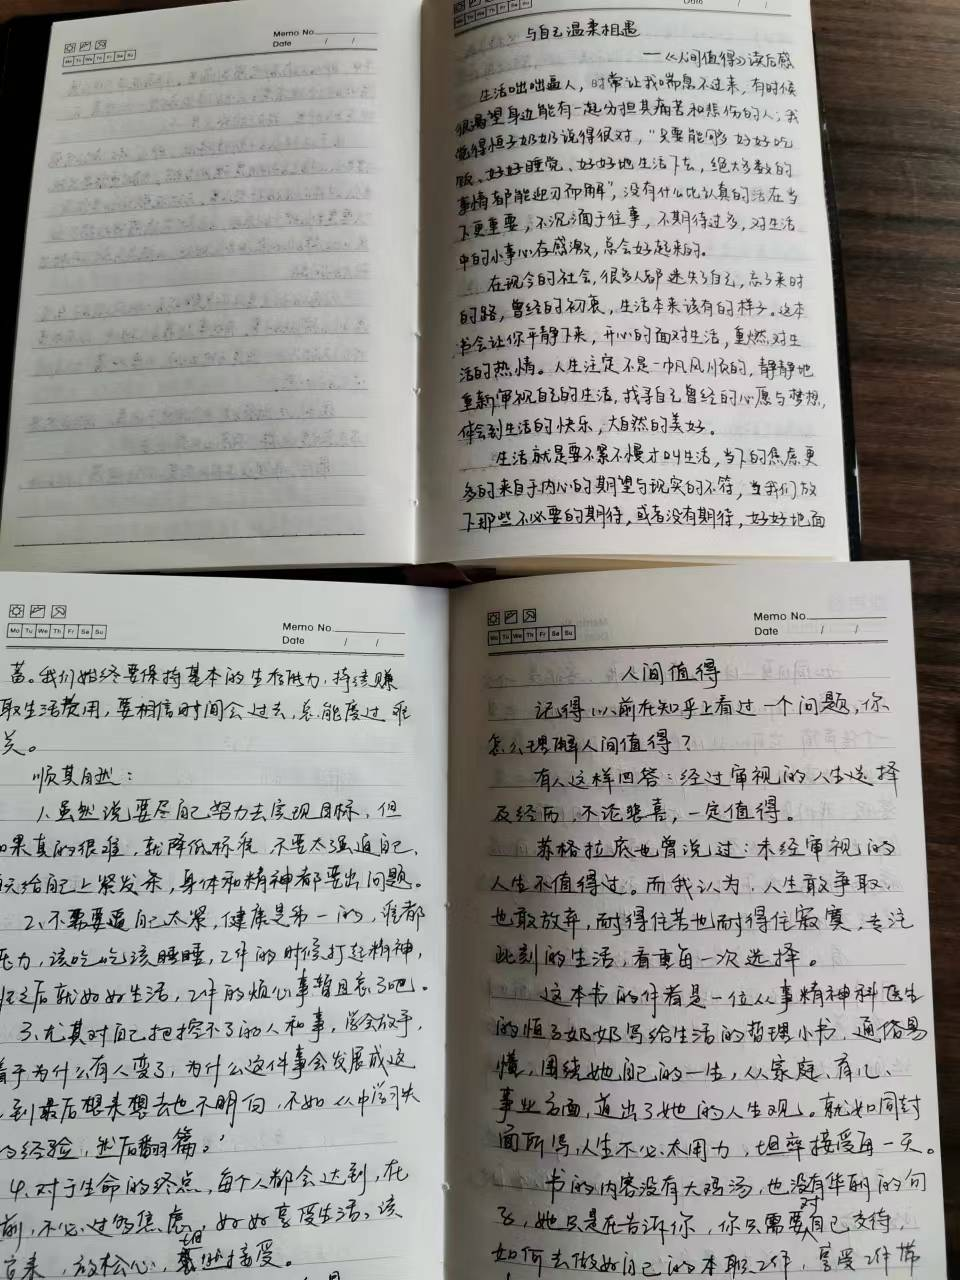 Memo No.
Date / /
Mo Tu We Th Fr Sa Su
Date / /
Mo Tu We Th Fr Sa Su
与自己温柔相遇
——《人间值得》读后感
生活咄咄逼人，时常让我喘息不过来，有时候
很渴望身边能有一起分担其痛苦和悲伤的人；我
觉得恒子奶奶说得很对，“只要能够好好吃
饭、好好睡觉、好好地生活下去，绝大多数的
事情都能迎刃而解”，没有什么比认真的活在当
下更重要，不沉湎于往事，不期待过多，对生活
中的小事心存感激，总会好起来的。
在现今的社会，很多人都迷失了自己，忘了来时
的路，曾经的初衷，生活本来该有的样子。这本
书会让你平静下来，开心的面对生活，重燃对生
活的热情。人生注定不是一帆风顺的，静静地
重新审视自己的生活，找寻自己曾经的心愿与梦想，
体会到生活的快乐，大自然的美好。
生活就是要不累不慢才叫生活，当下的焦虑更
多的来自于内心的期望与现实的不符，当我们放
下那些不必要的期待，或者没有期待，好好地面
Mo Tu We Th Fr Sa Su
Memo No.
Date / /
蓄。我们始终要保持基本的生存能力，持续赚
取生活费用，要相信时间会过去，总能度过难
关。
顺其自然：
1.虽然说要尽自己努力去实现目标，但
果真的很难，就降低标准，不要太强迫自己，
天给自己上紧发条，身体和精神都要出问题。
2.不需要逼自己太紧，健康是第一的，谁都
压力，该吃吃该睡睡，工作的时候打起精神，
之后就好好生活，工作的烦心事暂且忘了吧。
3.尤其对自己把控不了的人和事，学会放手，
于为什么有人变了，为什么这件事会发展成这
，到最后想来想去也不明白，不如从中消失
的经验，然后翻篇。
4.对于生命的终点，每个人都会达到，在
前，不必过多焦虑，好好享受生活，该
来，放松心，坦然接受。
Mo Tu We Th Fr Sa Su
Memo No.
Date / /
人间值得
记得以前在知乎上看过一个问题，你
怎么理解人间值得？
有人这样回答：经过审视的人生选择
及经历，不论悲喜，一定值得。
苏格拉底也曾说过：未经审视的
人生不值得过。而我认为，人生敢争取，
也敢放弃，耐得住苦也耐得住寂寞，专注
此刻的生活，看重每一次选择。
这本书的作者是一位从事精神科医生
的恒子奶奶写给生活的哲理小书，通俗易
懂，围绕她自己的一生，从家庭、育儿、
事业多面，道出了她的人生观。就如同封
面所写，人生不必太用力，坦率接受每一天。
书的内容没有大鸡汤，也没有华丽的句
子，她只是在告诉你，你只需要对自己交待
如何去做好自己的本职工作，享受工作带